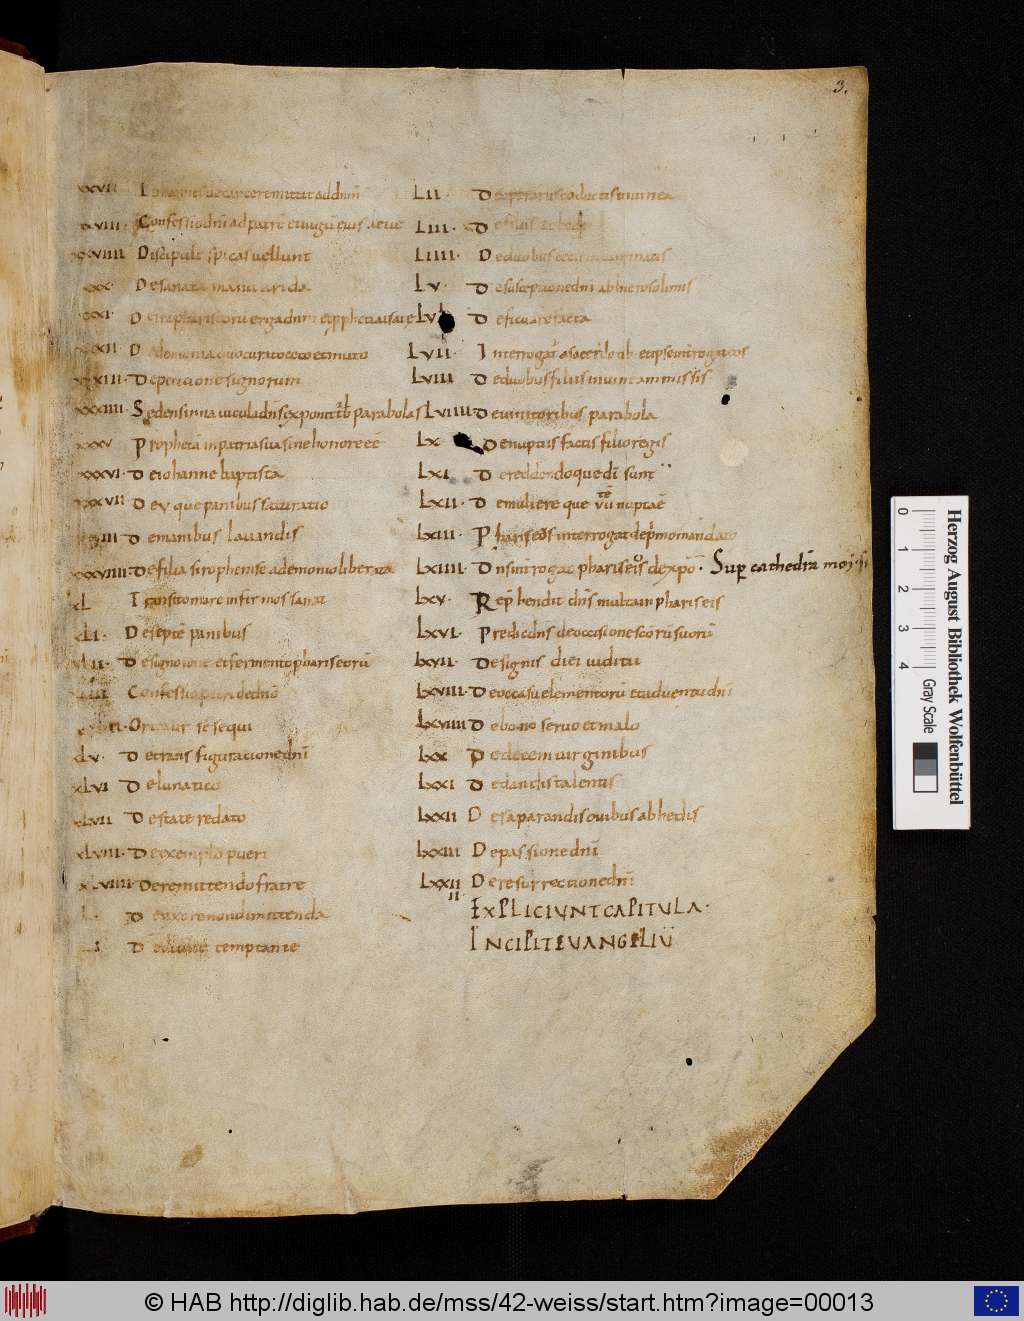 3.
xxvii Iohannes de carcere mittit ad dnm̄
xxviii. Confessio dn̄i ad patrē et iugū eius leue
xxviiii Discipuli spicas uellunt
xxx. De sanata manu arida
xxxi. De
xxxii De demoniaco curato ceco et muto
xxxiii. De peticione signorum
xxxiiii Sedens in nauicula dn̄s exponit trib; parabolas
xxxv Prophetā in patria sua sine honore eē
xxxvi. De iohanne baptista
xxxvii De v que panibus saturatio
De manibus lauandis
xxxviiii De filia sirophenisse a demonio liberata
xL Transito mare infirmos sanat
xLi. De septē panibus
De signo ione et fermento phariseorū
Confessio petri de dn̄o
Ortatur se sequi
xLv. De transfiguracione dn̄i
xLvi De lunatico
xLvii De statere dato
xLviii. De exemplo pueri
xLviiii De remittendo fratre
L. De uxore non dimittenda
Li De diuite temptante
Lii. De operariis conductis in uinea
Liii. De filiis zebedei
Liiii. De duobus cecis inluminatis
Lv. De susceptione dn̄i ab hierosolimis
Lvi De ficu arefacta
Lvii. Interrogat a sacerdotib: et ipse interrogat eos
Lviii De duobus filiis in uineam missis
Lviiii De uinitoribus parabola
Lx De nuptiis factis filio regis
Lxi De reddendo que dī sunt
Lxii. De muliere que vii nuptaē
Lxiii. Phariseus interrogat de p̄mo mandato
Lxiiii. Dn̄s introgat phariseos de xpō. Sup cathedrā moi
Lxv. Rep̄hendit dn̄s multa in phariseis
Lxvi. Predic dn̄s de occisione sc̄orū suorū
Lxvii. De signis diei iuditii
Lxviii. De occasu elementorū et aduentu dn̄i
Lxviiii De bono seruo et malo
Lxx De decem uirginibus
Lxxi De dandis talentis
Lxxii De separandis ouibus ab hedis
Lxxiii De passione dn̄i
Lxxiiii De resurrectione dn̄i
EXPLICIUNT CAPITULA.
INCIPIT EUANGELIU
0 1 2 3 4
Gray Scale
Herzog August Bibliothek Wolfenbüttel
© HAB http://diglib.hab.de/mss/42-weiss/start.htm?image=00013